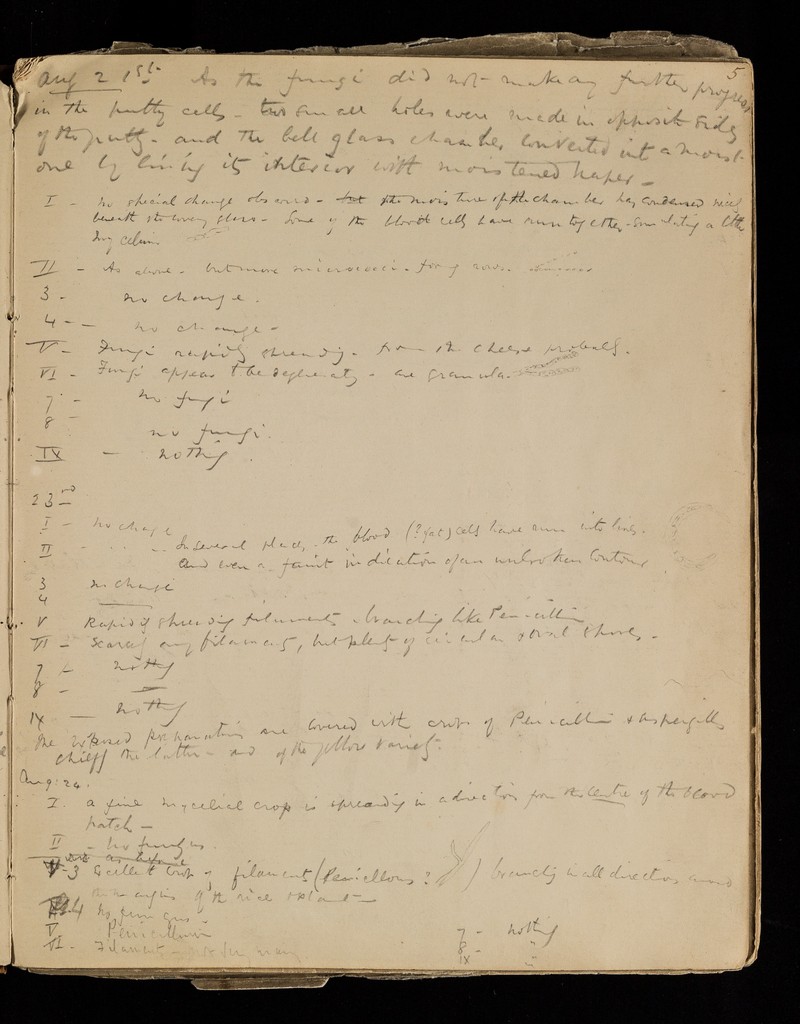 5
Aug 21st As the fungi did not make any further progress
in the putty cells - two small holes were made in opposite sides
of the putty - and the bell glass chamber converted into a moist
one by lining its interior with moistened paper -
I - no special change observed - but the moisture of the chamber has condensed
beneath the covering glass - Some of the blood cells have run together - simulating a little
mycelium
II - As above - but more micrococci - forming rows.
3 - no change.
4 - - no change -
V - Fungi rapidly spreading - from the cheese probably.
VI - Fungi appear to be degenerating - are granular.
7 - no fungi
8 - no fungi.
IX - nothing.
23rd
I - no change
II - " " " In several places, the blood (? fat) cells have run into lines.
and even a faint indication of an unbroken contour.
3 no change
4 ———
V Rapidly spreading filaments branching like Penicillium
VI - Scarcely any filaments, but plenty of circular & oval spores -
7 - nothing
8 - —
IX — nothing
The exposed preparations are covered with crops of Penicillium & Aspergillus
chiefly the latter - and of the yellow variety.
Aug: 24.
I. a fine mycelial crop is spreading in a direction from the centre of the blood
patch -
II - no fungus.
as before
V-3 Excellent crop of filaments (Penicillous? ) branching in all directions around
the margins of the rice
4 No fungus -
V. Penicillium
VI - Filaments - not very many
7 - nothing
8 - "
IX "